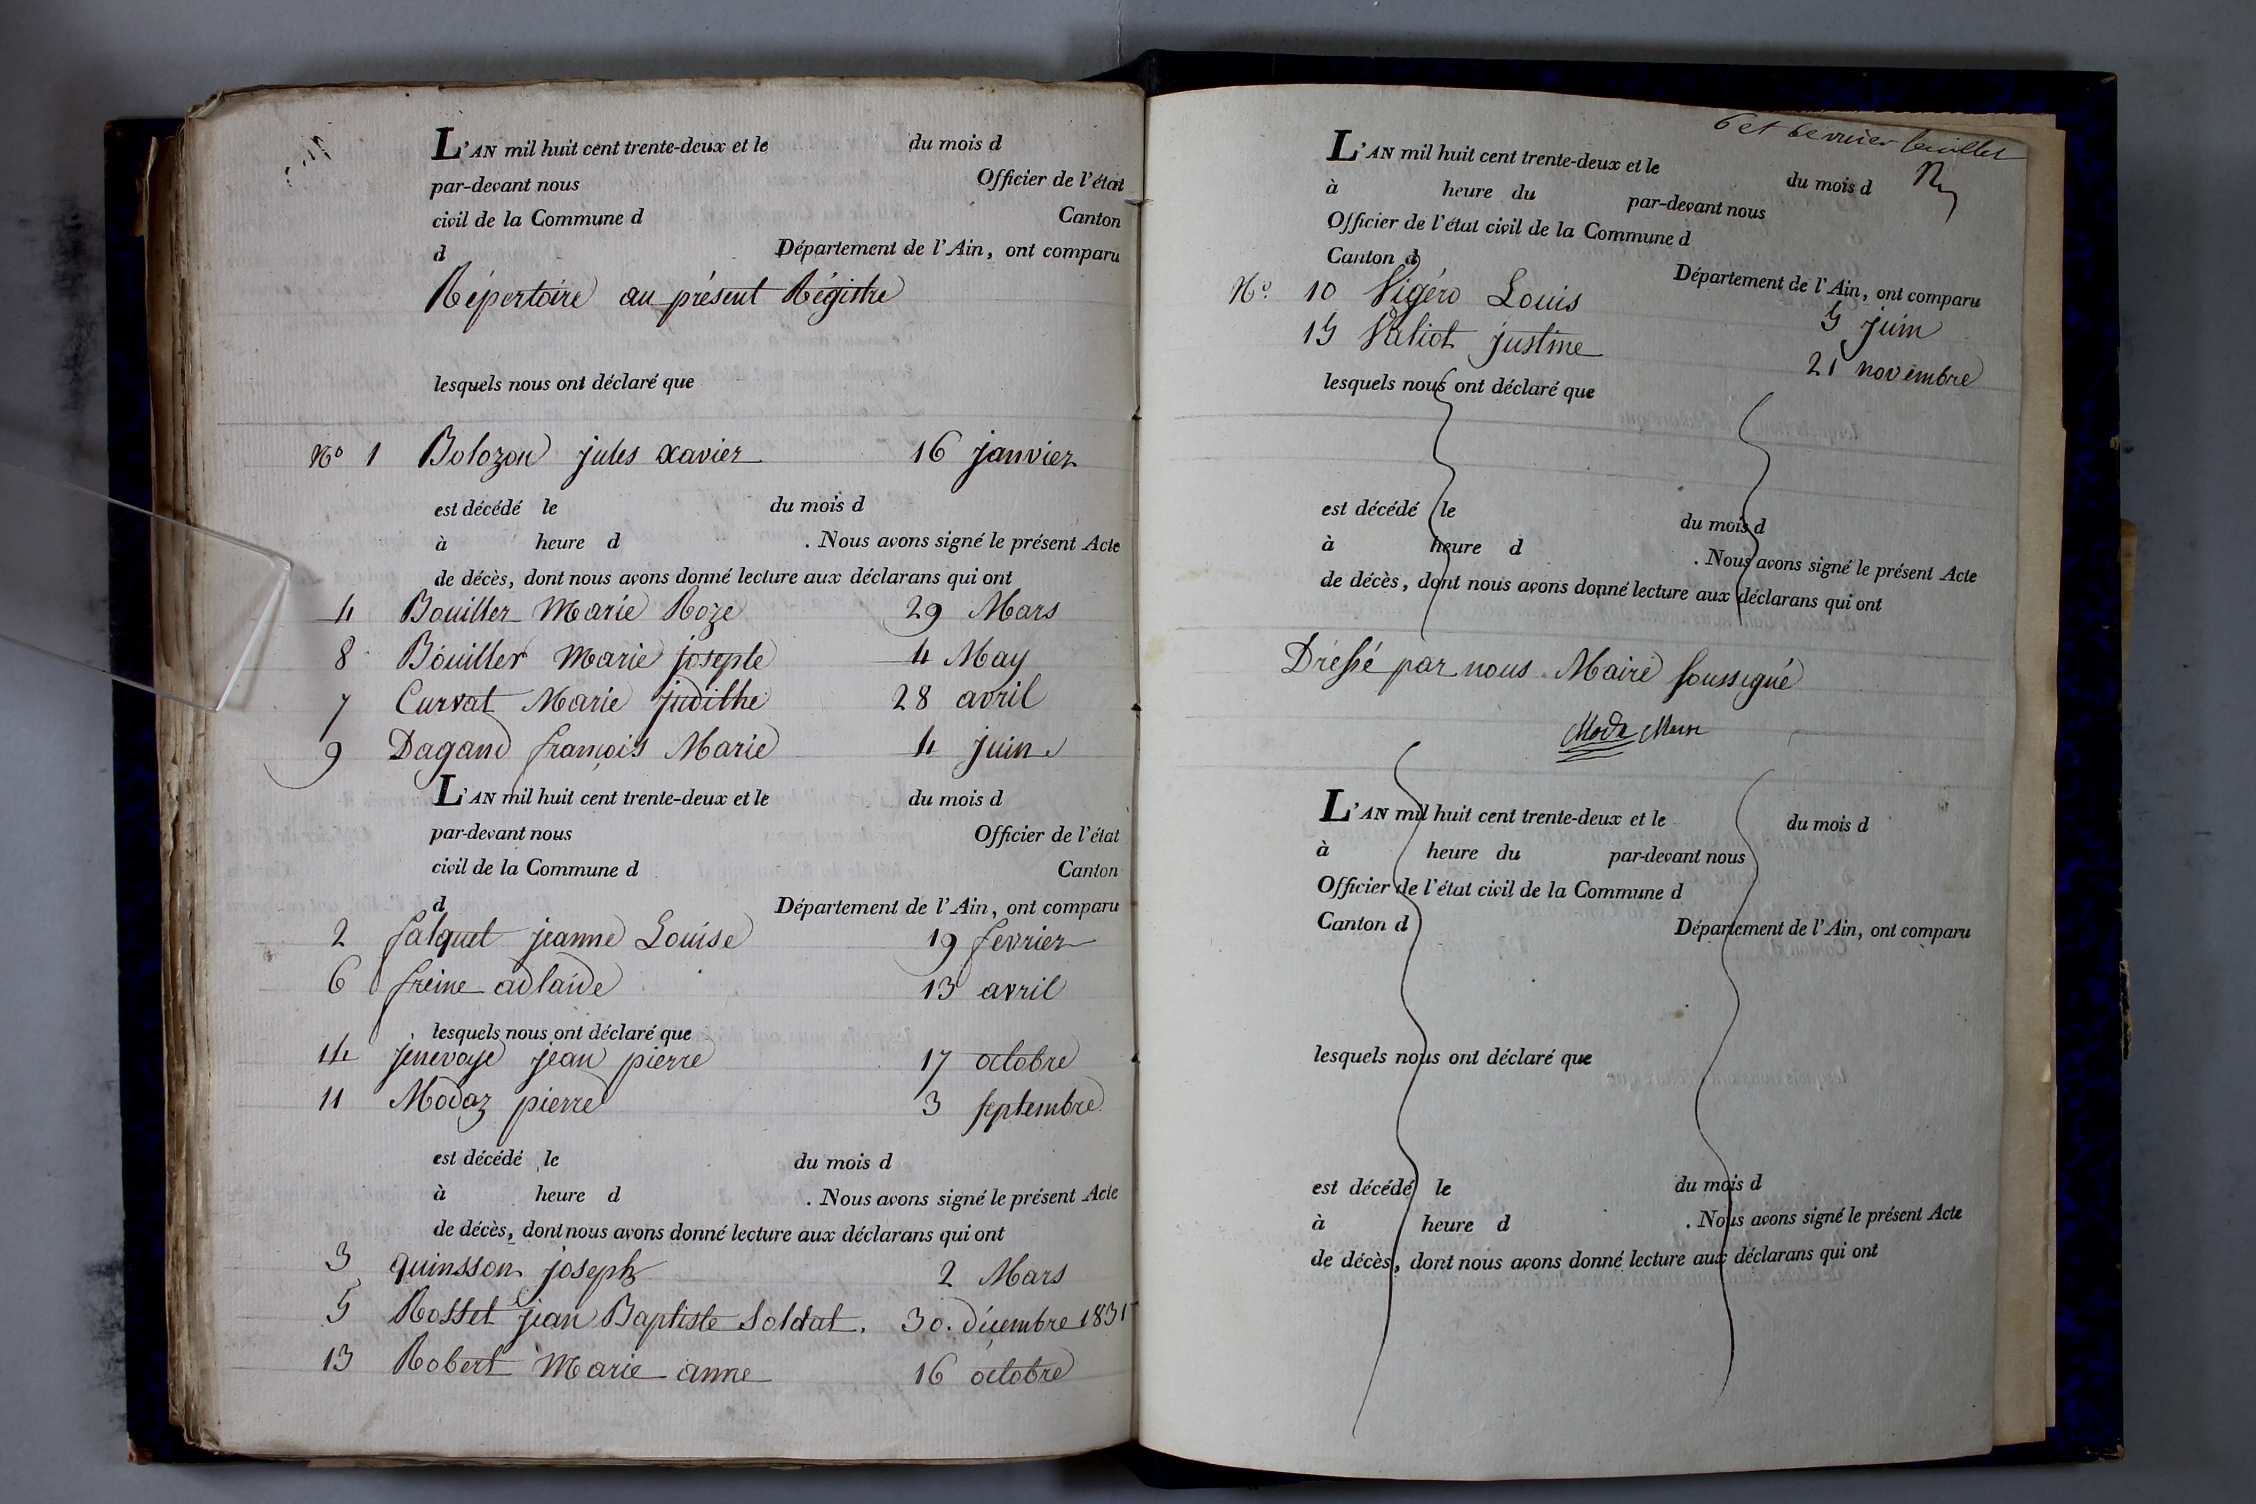 L'AN mil huit cent trente-deux et le du mois d
par-devant nous Officier de l'état
civil de la Commune d Canton
d Département de l'Ain, ont comparu
Répertoire au présent Régistre
lesquels nous ont déclaré que
No 1 Bolozon jules xavier 16 janvier
est décédé le du mois d
à heure d . Nous avons signé le présent Acte
de décès, dont nous avons donné lecture aux déclarans qui ont
4 Bouiller Marie Roze 29 Mars
8 Bouiller Marie josepte 4 May
7 Curvat Marie judithe 28 avril
9 Dagand françois Marie 4 juin
L'AN mil huit cent trente-deux et le du mois d
par-devant nous Officier de l'état
civil de la Commune d Canton
d Département de l'Ain, ont comparu
2 falquet jeanne Louise 19 fevrier
6 freine adlaide 13 avril
lesquels nous ont déclaré que
14 jenevoye jean pierre 17 octobre
11 Modaz pierre 3 septembre
est décédé le du mois d
à heure d . Nous avons signé le présent Acte
de décès, dont nous avons donné lecture aux déclarans qui ont
3 quinsson joseph 2 Mars
5 Rosset jean Baptiste Soldat. 30. décembre 1831
13 Robert Marie anne 16 octobre
6 et dernier feuillet
L'AN mil huit cent trente-deux et le du mois d
à heure du par-devant nous
Officier de l'état civil de la Commune d
Canton d Département de l'Ain, ont comparu
No. 10 Vigéro Louis 5 juin
15 Valiot justine 21 novembre
lesquels nous ont déclaré que
est décédé le du mois d
à heure d . Nous avons signé le présent Acte
de décès, dont nous avons donné lecture aux déclarans qui ont
Dressé par nous Maire soussigné
L'AN mil huit cent trente-deux et le du mois d
à heure du par-devant nous
Officier de l'état civil de la Commune d
Canton d Département de l'Ain, ont comparu
lesquels nous ont déclaré que
est décédé le du mois d
à heure d . Nous avons signé le présent Acte
de décès, dont nous avons donné lecture aux déclarans qui ont